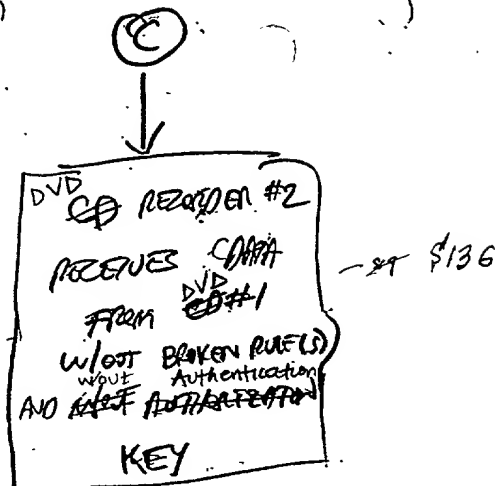 C
DVD
CD RECORDER #2
RECEIVES CDATA
DVD
FROM CD #1
W/OUT BROKEN RULE(S)
w/out Authentication
AND W/OUT AUTHORIZATION
KEY
$136